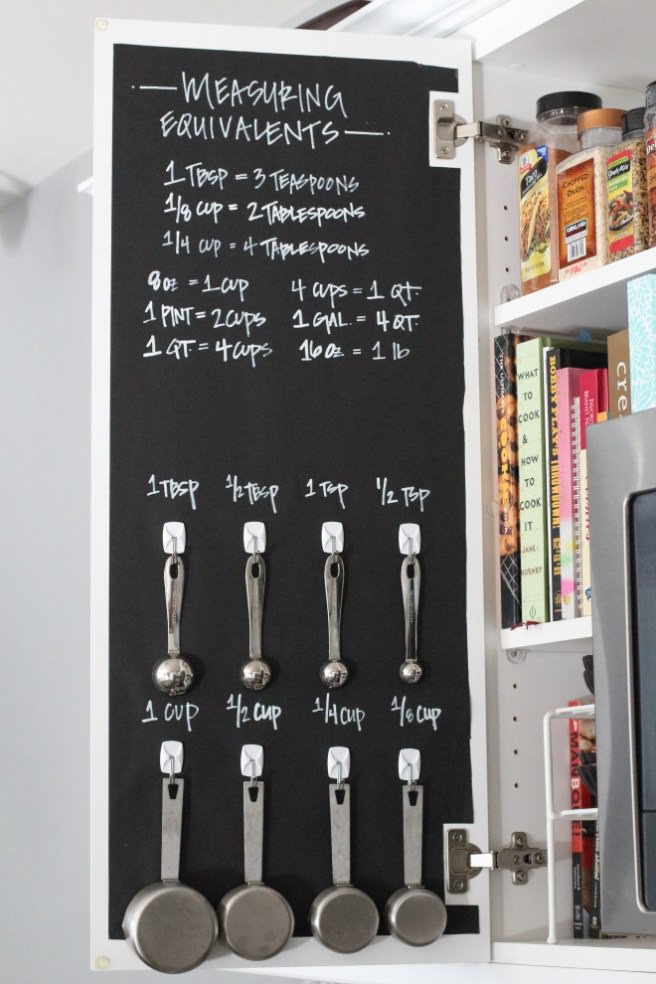 MEASURING
EQUIVALENTS
1 TBSP = 3 TEASPOONS
1/8 CUP = 2 TABLESPOONS
1/4 CUP = 4 TABLESPOONS
8 oz = 1 CUP
4 CUPS = 1 QT.
1 PINT = 2 CUPS
1 GAL. = 4 QT.
1 QT. = 4 CUPS
16 oz = 1 lb
1 TBSP
1/2 TBSP
1 TSP
1/2 TSP
1 CUP
1/2 CUP
1/4 CUP
1/8 CUP
TACO
CHOPPED
ONION
KIRKLAND
WHAT
TO
COOK
&
HOW
TO
COOK
IT
JANE
HORNBY
BOBBY FLAY'S
cre